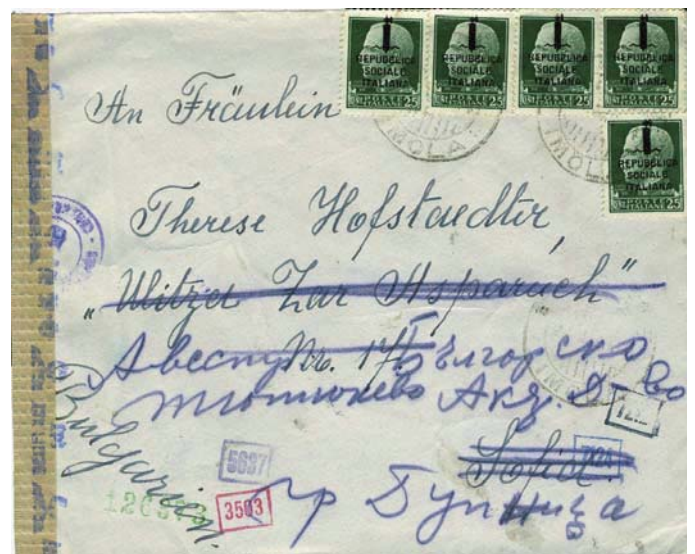 REPUBBLICA SOCIALE ITALIANA
REPUBBLICA SOCIALE ITALIANA
REPUBBLICA SOCIALE ITALIANA
REPUBBLICA SOCIALE ITALIANA
REPUBBLICA SOCIALE ITALIANA
IMOLA
IMOLA
An Fräulein
Therese Hofstaedter,
"Ulitza Zar Asparuch"
Nr. 17
Българско
Тютюнево Акц. Д-во
Sofia
Bulgarien.
гр Дупница
5637
3503